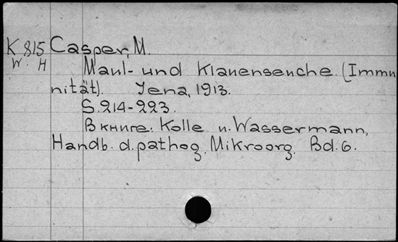 K 815 Casper, M.
W. H Maul- und Klauenseuche (Immu
nität). Jena, 1913.
S. 214-223.
В книге: Kolle u. Wassermann,
Handb. d. pathog. Mikroorg. Bd. 6.